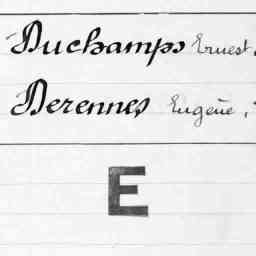 Duchamps Ernest.
Derennes Eugène,
E